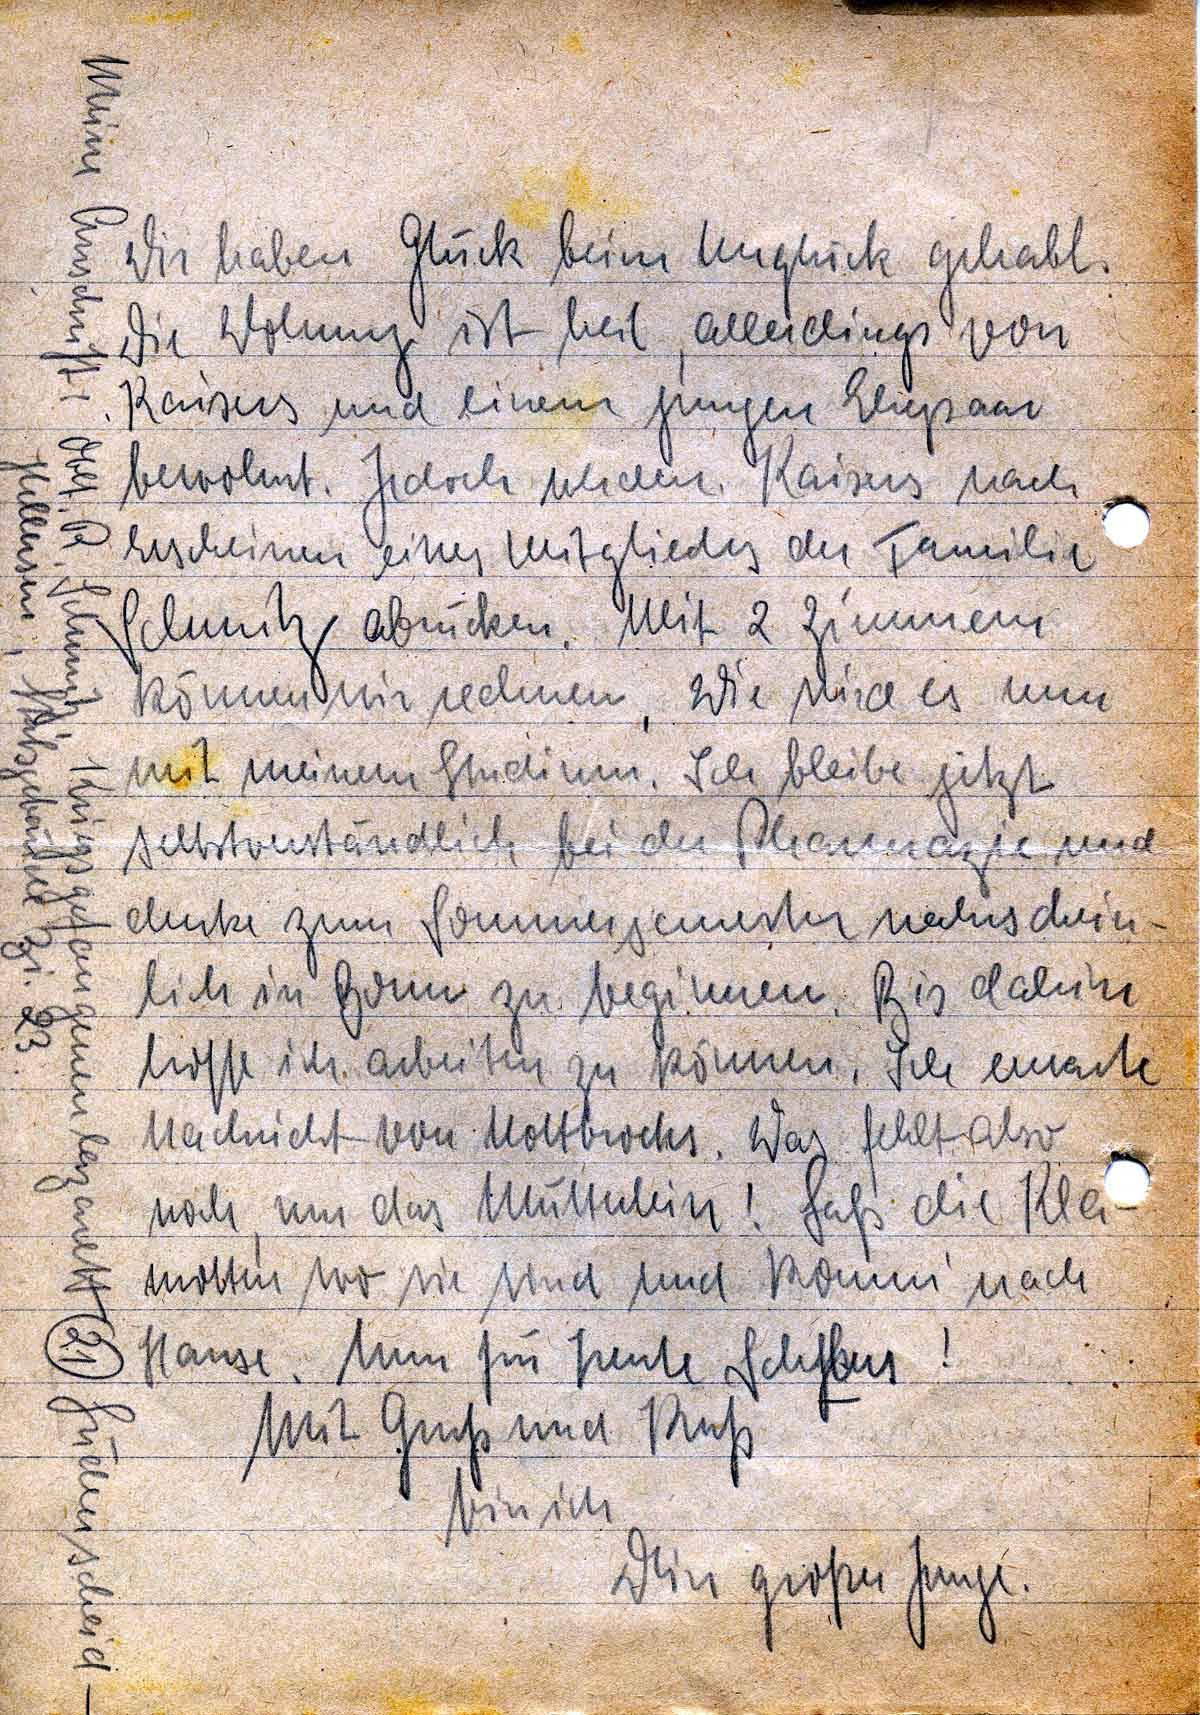 Wir haben Glück beim Unglück gehabt.
Die Wohnung ist heil, allerdings von
Kaisers und einem jungen Ehepaar
bewohnt. Jedoch werden Kaisers nach
Erscheinen eines Mitgliedes der Familie
Schmitz abrücken. Mit 2 Zimmern
können wir rechnen. Wie wird es nun
mit meinem Studium. Ich bleibe jetzt
selbstverständlich bei der Pharmazie und
denke zum Sommersemester wahrschein-
lich in Bonn zu beginnen. Bis dahin
hoffe ich arbeiten zu können. Ich erwarte
Nachricht von Holtbrocks. Was fehlt also
noch, nur das Mütterlein! Laß die Kla-
motten wo sie sind und komm' nach
Hause. Nun für heute Schluss!
Mit Gruß und Kuß
bin ich
Dein großer Junge.
Meine Anschrift: Schmitz Kriegsgefangenenlazarett (21) Lüdenscheid —
Hellersen, Stabsgebäude Zi. 23.